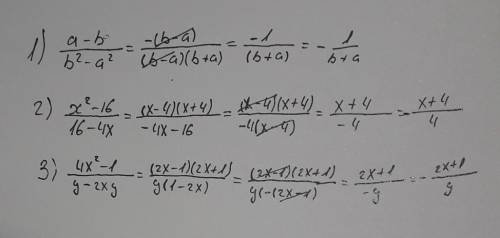 1) (a-b)/(b²-a²) = (-(b-a))/((b-a)(b+a)) = (-1)/((b+a)) = - 1/(b+a)
2) (x²-16)/(16-4x) = ((x-4)(x+4))/(-4x-16) = ((x-4)(x+4))/(-4(x-4)) = (x+4)/(-4) = (x+4)/4
3) (4x²-1)/(y-2xy) = ((2x-1)(2x+1))/(y(1-2x)) = ((2x-1)(2x+1))/(y(-(2x-1))) = (2x+1)/(-y) = - (2x+1)/y